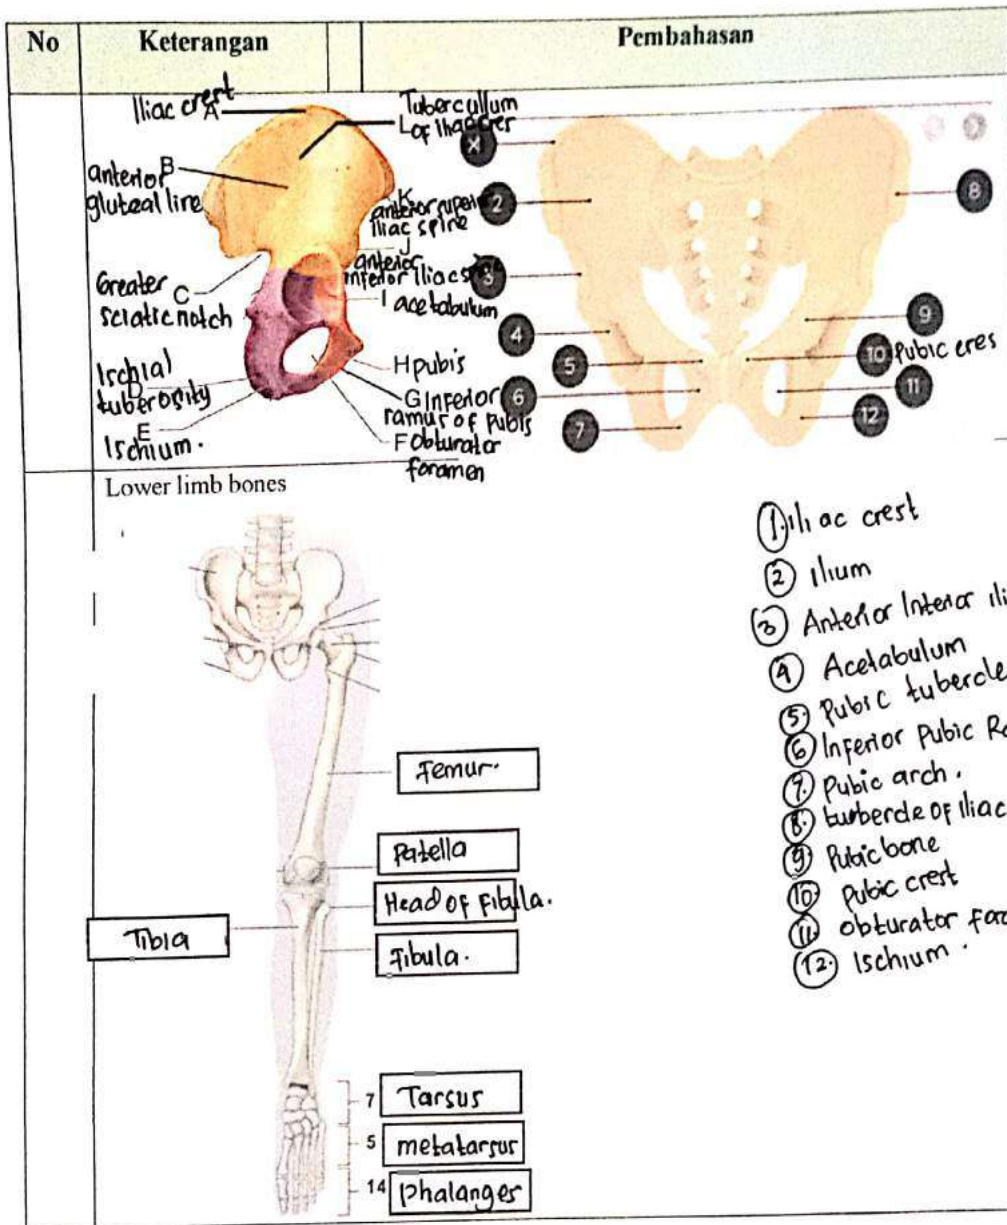 No
Keterangan
Pembahasan
Iliac crest
A
Tubercullum
L of Iliac cres
B
anterior
gluteal line
K
anterior superior
Iliac spine
J
anterior
inferior Iliac
C
Greater
sciatic notch
I acetabulum
Ischial
D
tuberosity
E
Ischium.
H pubis
G Inferior
ramur of pubis
F Obturator
foramen
X
2
3
4
5
6
7
8
9
10 Pubic cres
11
12
Lower limb bones
Femur.
Patella
Head of Fibula.
Tibia
Fibula.
7 Tarsus
5 metatarsur
14 Phalanger
1. iliac crest
2 Ilium
3 Anterior Interior ili
4 Acetabulum
5. Pubic tubercle
6 Inferior Pubic Ra
7. Pubic arch.
8. turbercle of iliac
9. Pubic bone
10. Pubic crest
11. obturator
12. Ischium.